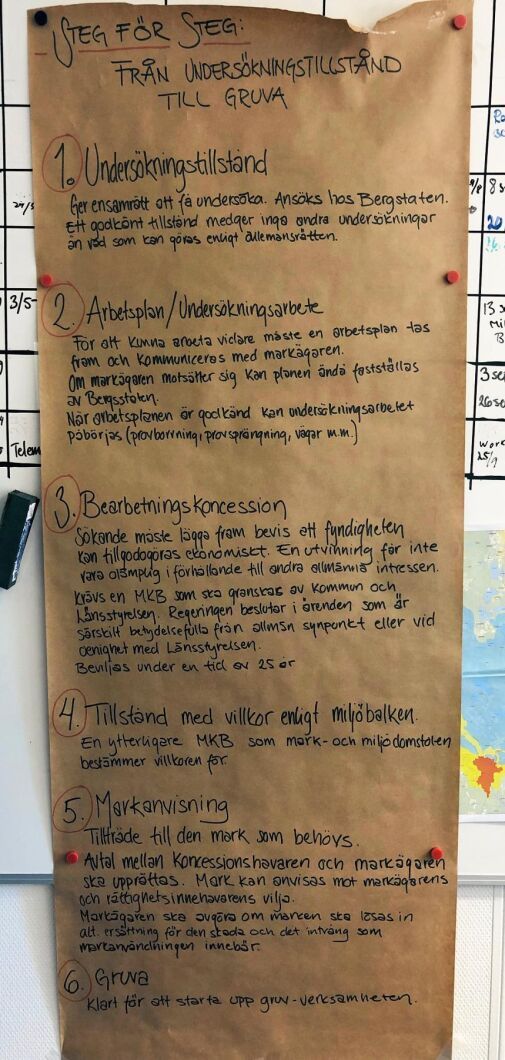 STEG FÖR STEG:
FRÅN UNDERSÖKNINGSTILLSTÅND
TILL GRUVA
1. Undersökningstillstånd
Ger ensamrätt att få undersöka. Ansöks hos Bergstaten.
Ett godkänt tillstånd medger inga andra undersökningar
än vad som kan göras enligt allemansrätten.
2. Arbetsplan/Undersökningsarbete
För att kunna arbeta vidare måste en arbetsplan tas
fram och kommuniceras med markägaren.
Om markägaren motsätter sig kan planen ändå fastställas
av Bergsstaten.
När arbetsplanen är godkänd kan undersökningsarbetet
påbörjas (provborrning, provsprängning, vägar m.m.)
3. Bearbetningskoncession
Sökande måste lägga fram bevis att fyndigheten
kan tillgodogöras ekonomiskt. En utvinning får inte
vara olämplig i förhållande till andra allmänna intressen.
Krävs en MKB som ska granskas av kommun och
Länsstyrelsen. Regeringen beslutar i ärenden som är
särskilt betydelsefulla från allmän synpunkt eller vid
oenighet med Länsstyrelsen.
Beviljas under en tid av 25 år
4. Tillstånd med villkor enligt miljöbalken.
En ytterligare MKB som mark- och miljödomstolen
bestämmer villkoren för.
5. Markanvisning
Tillträde till den mark som behövs.
Avtal mellan koncessionshavaren och markägaren
ska upprättas. Mark kan anvisas mot markägarens
och rättighetsinnehavarens vilja.
Markägaren ska avgöra om marken ska lösas in
alt. ersättning för den skada och det intrång som
markanvändningen innebär.
6. Gruva
Klart för att starta upp gruv-verksamheten.
3/5-
Telem
8 s
20
13 s
Mil
B
3 se
26 se
work
25/9